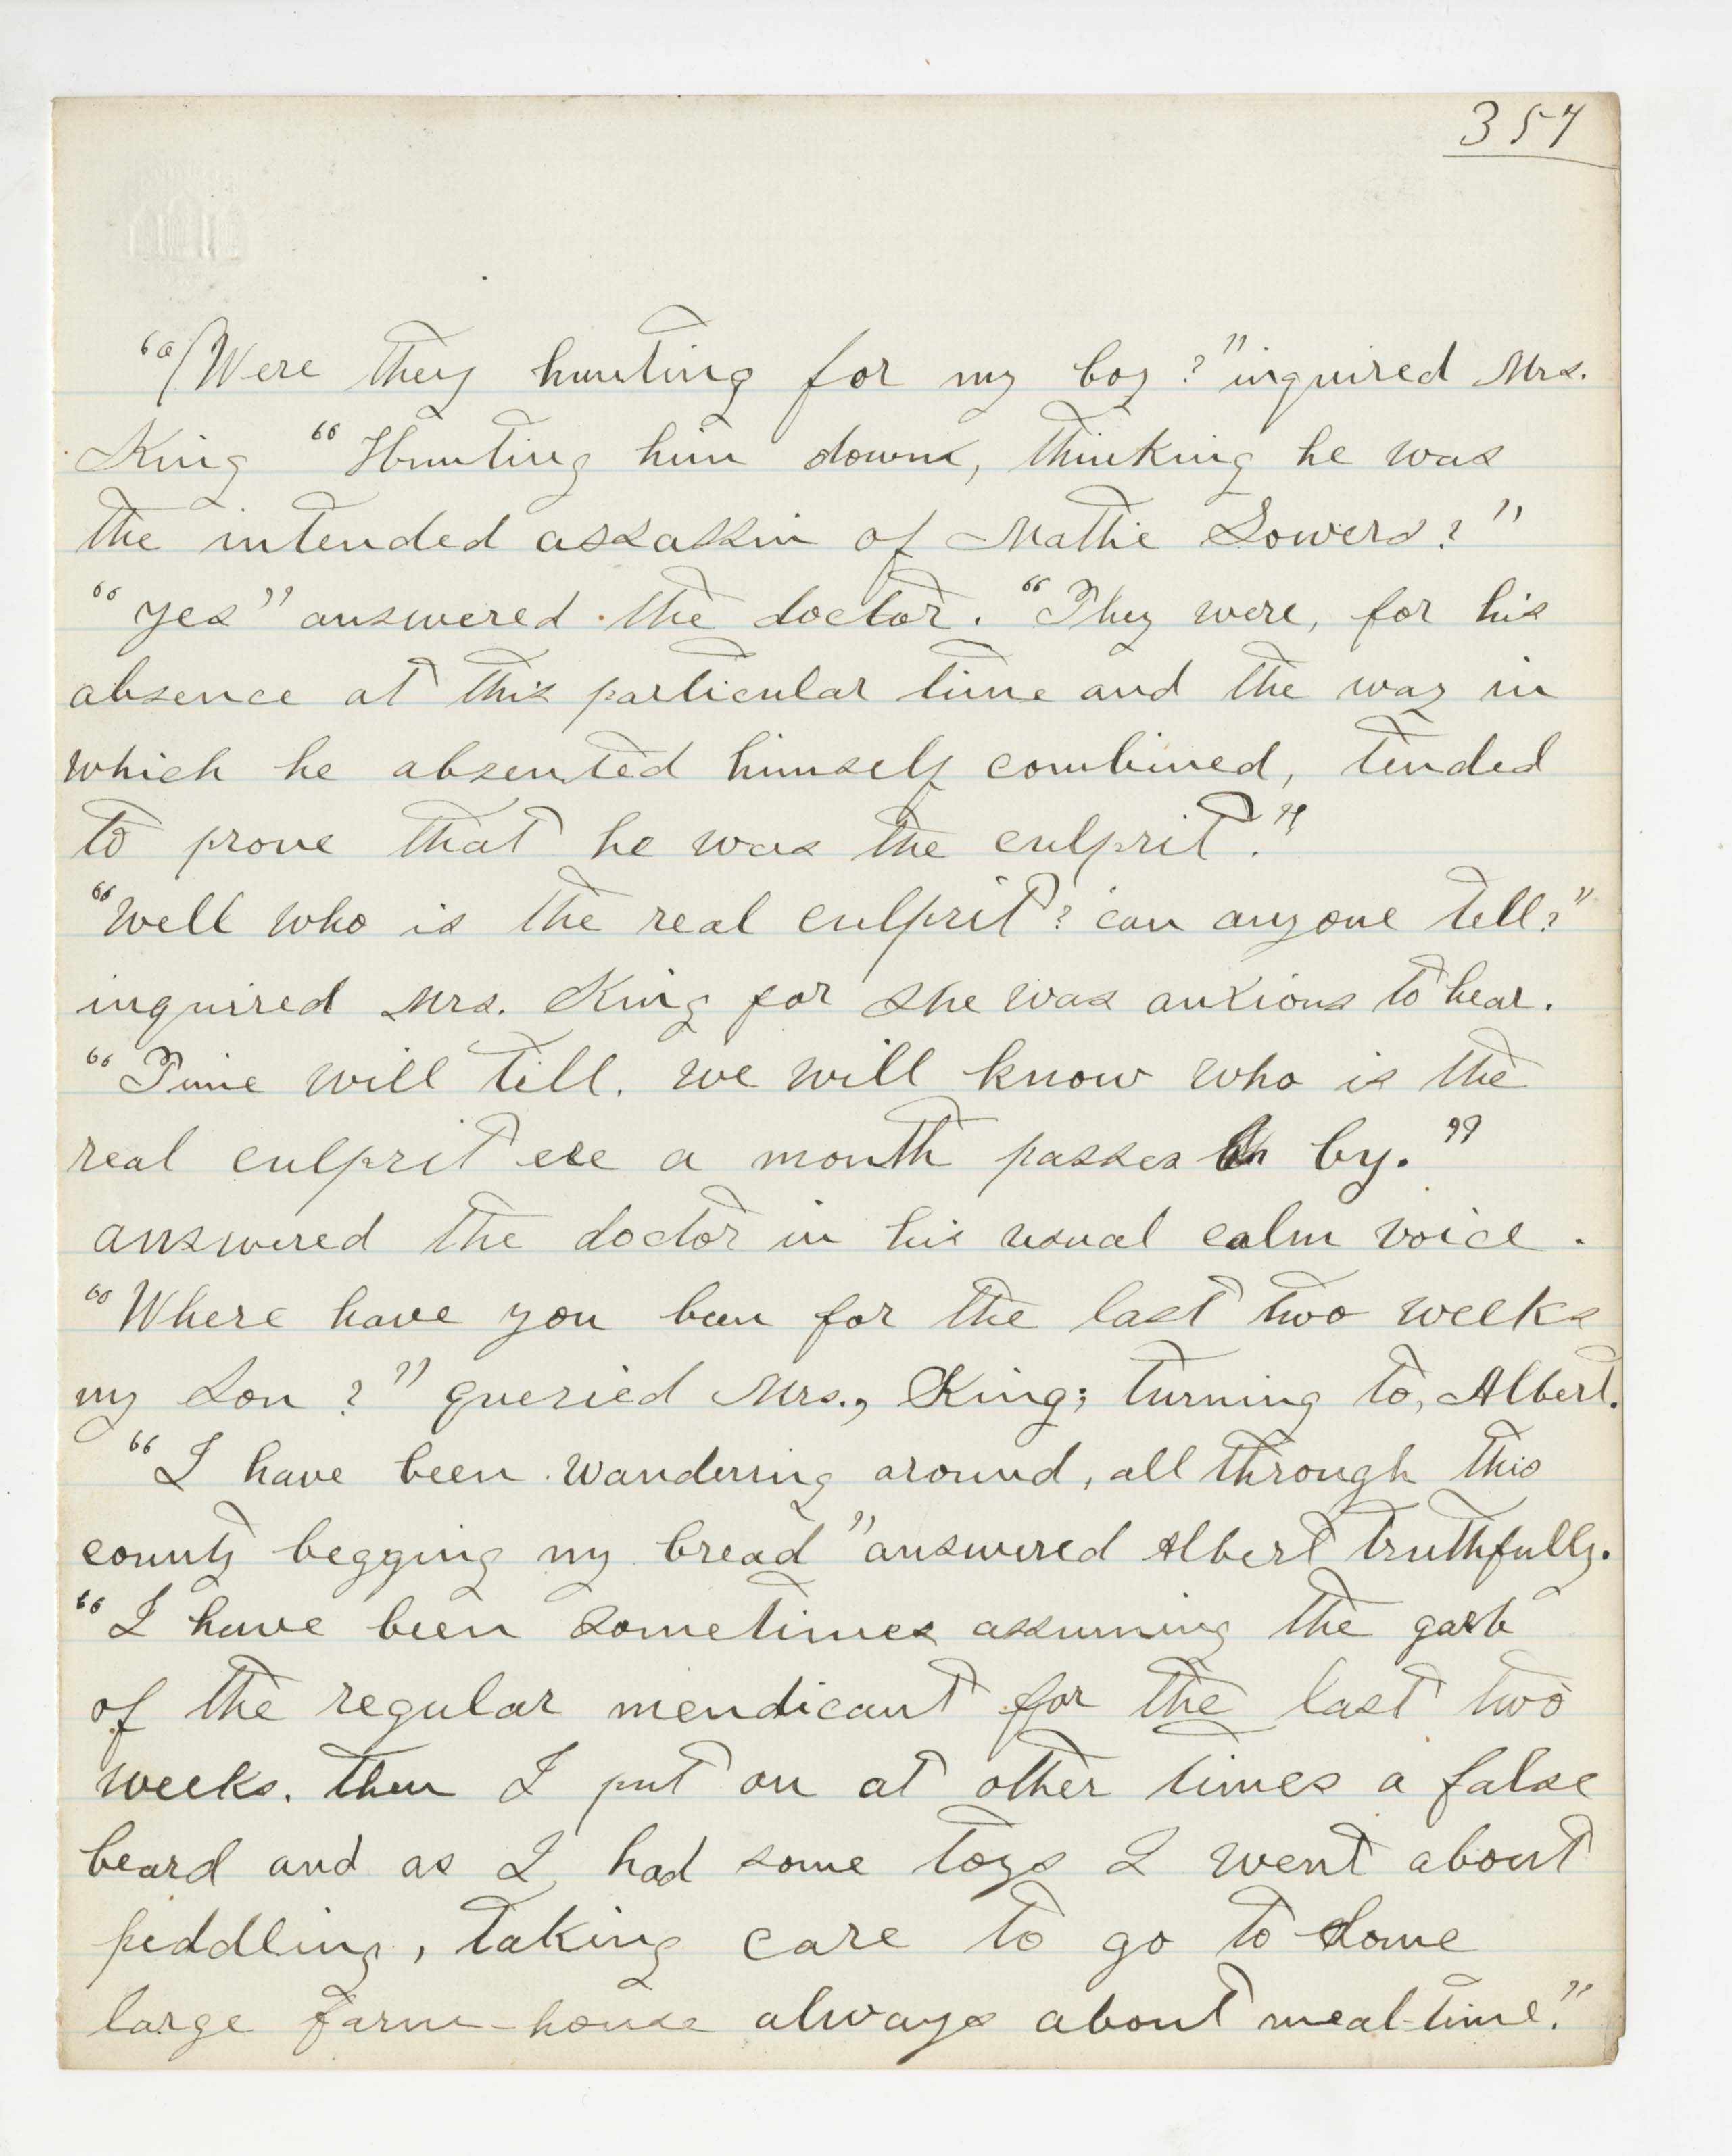 357
"Were they hunting for my boy?" inquired Mrs.
King "Hunting him down, thinking he was
the intended assassin of Mattie Sowers?"
"yes" answered the doctor. "They were, for his
absence at this particular time and the way in
which he absented himself combined, tended
to prove that he was the culprit."
"Well who is the real culprit? can anyone tell?"
inquired Mrs. King for she was anxious to hear.
"Time will till. we will know who is the
real culprit ere a month passes by."
answered the doctor in his usual calm voice.
"Where have you been for the last two weeks
my son?" queried Mrs., King; turning to, Albert.
"I have been wandering around, all through this
county begging my bread" answered Albert truthfully.
"I have been sometimes assuming the garb
of the regular mendicant for the last two
weeks. then I put on at other times a false
beard and as I had some toys I went about
peddling, taking care to go to some
large farm-house always about meal-time."